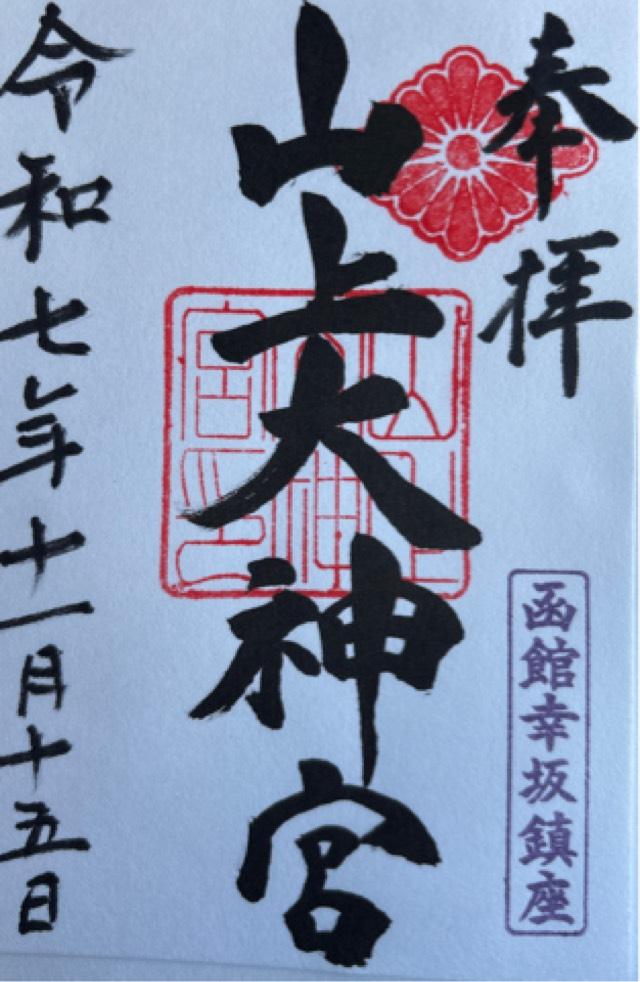 奉拝
函館幸坂鎮座
山上大神宮
令和七年十一月十五日